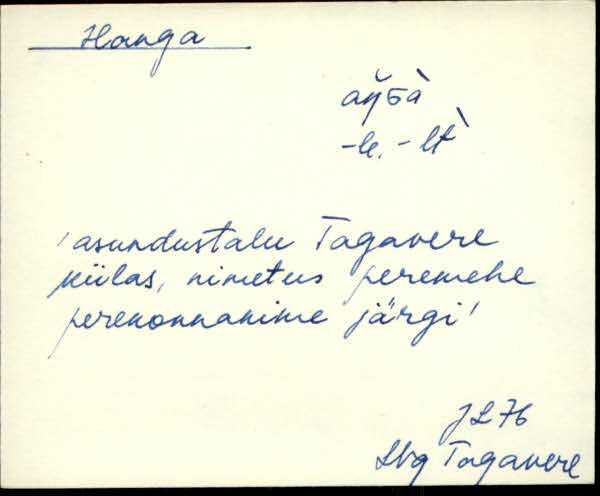 Hanga
aŋ̆ɢà
-le. -lt̀
'asundustalu Tagavere
külas, nimetus peremehe
perekonnanime järgi'
JL 76
Lbg Tagavere